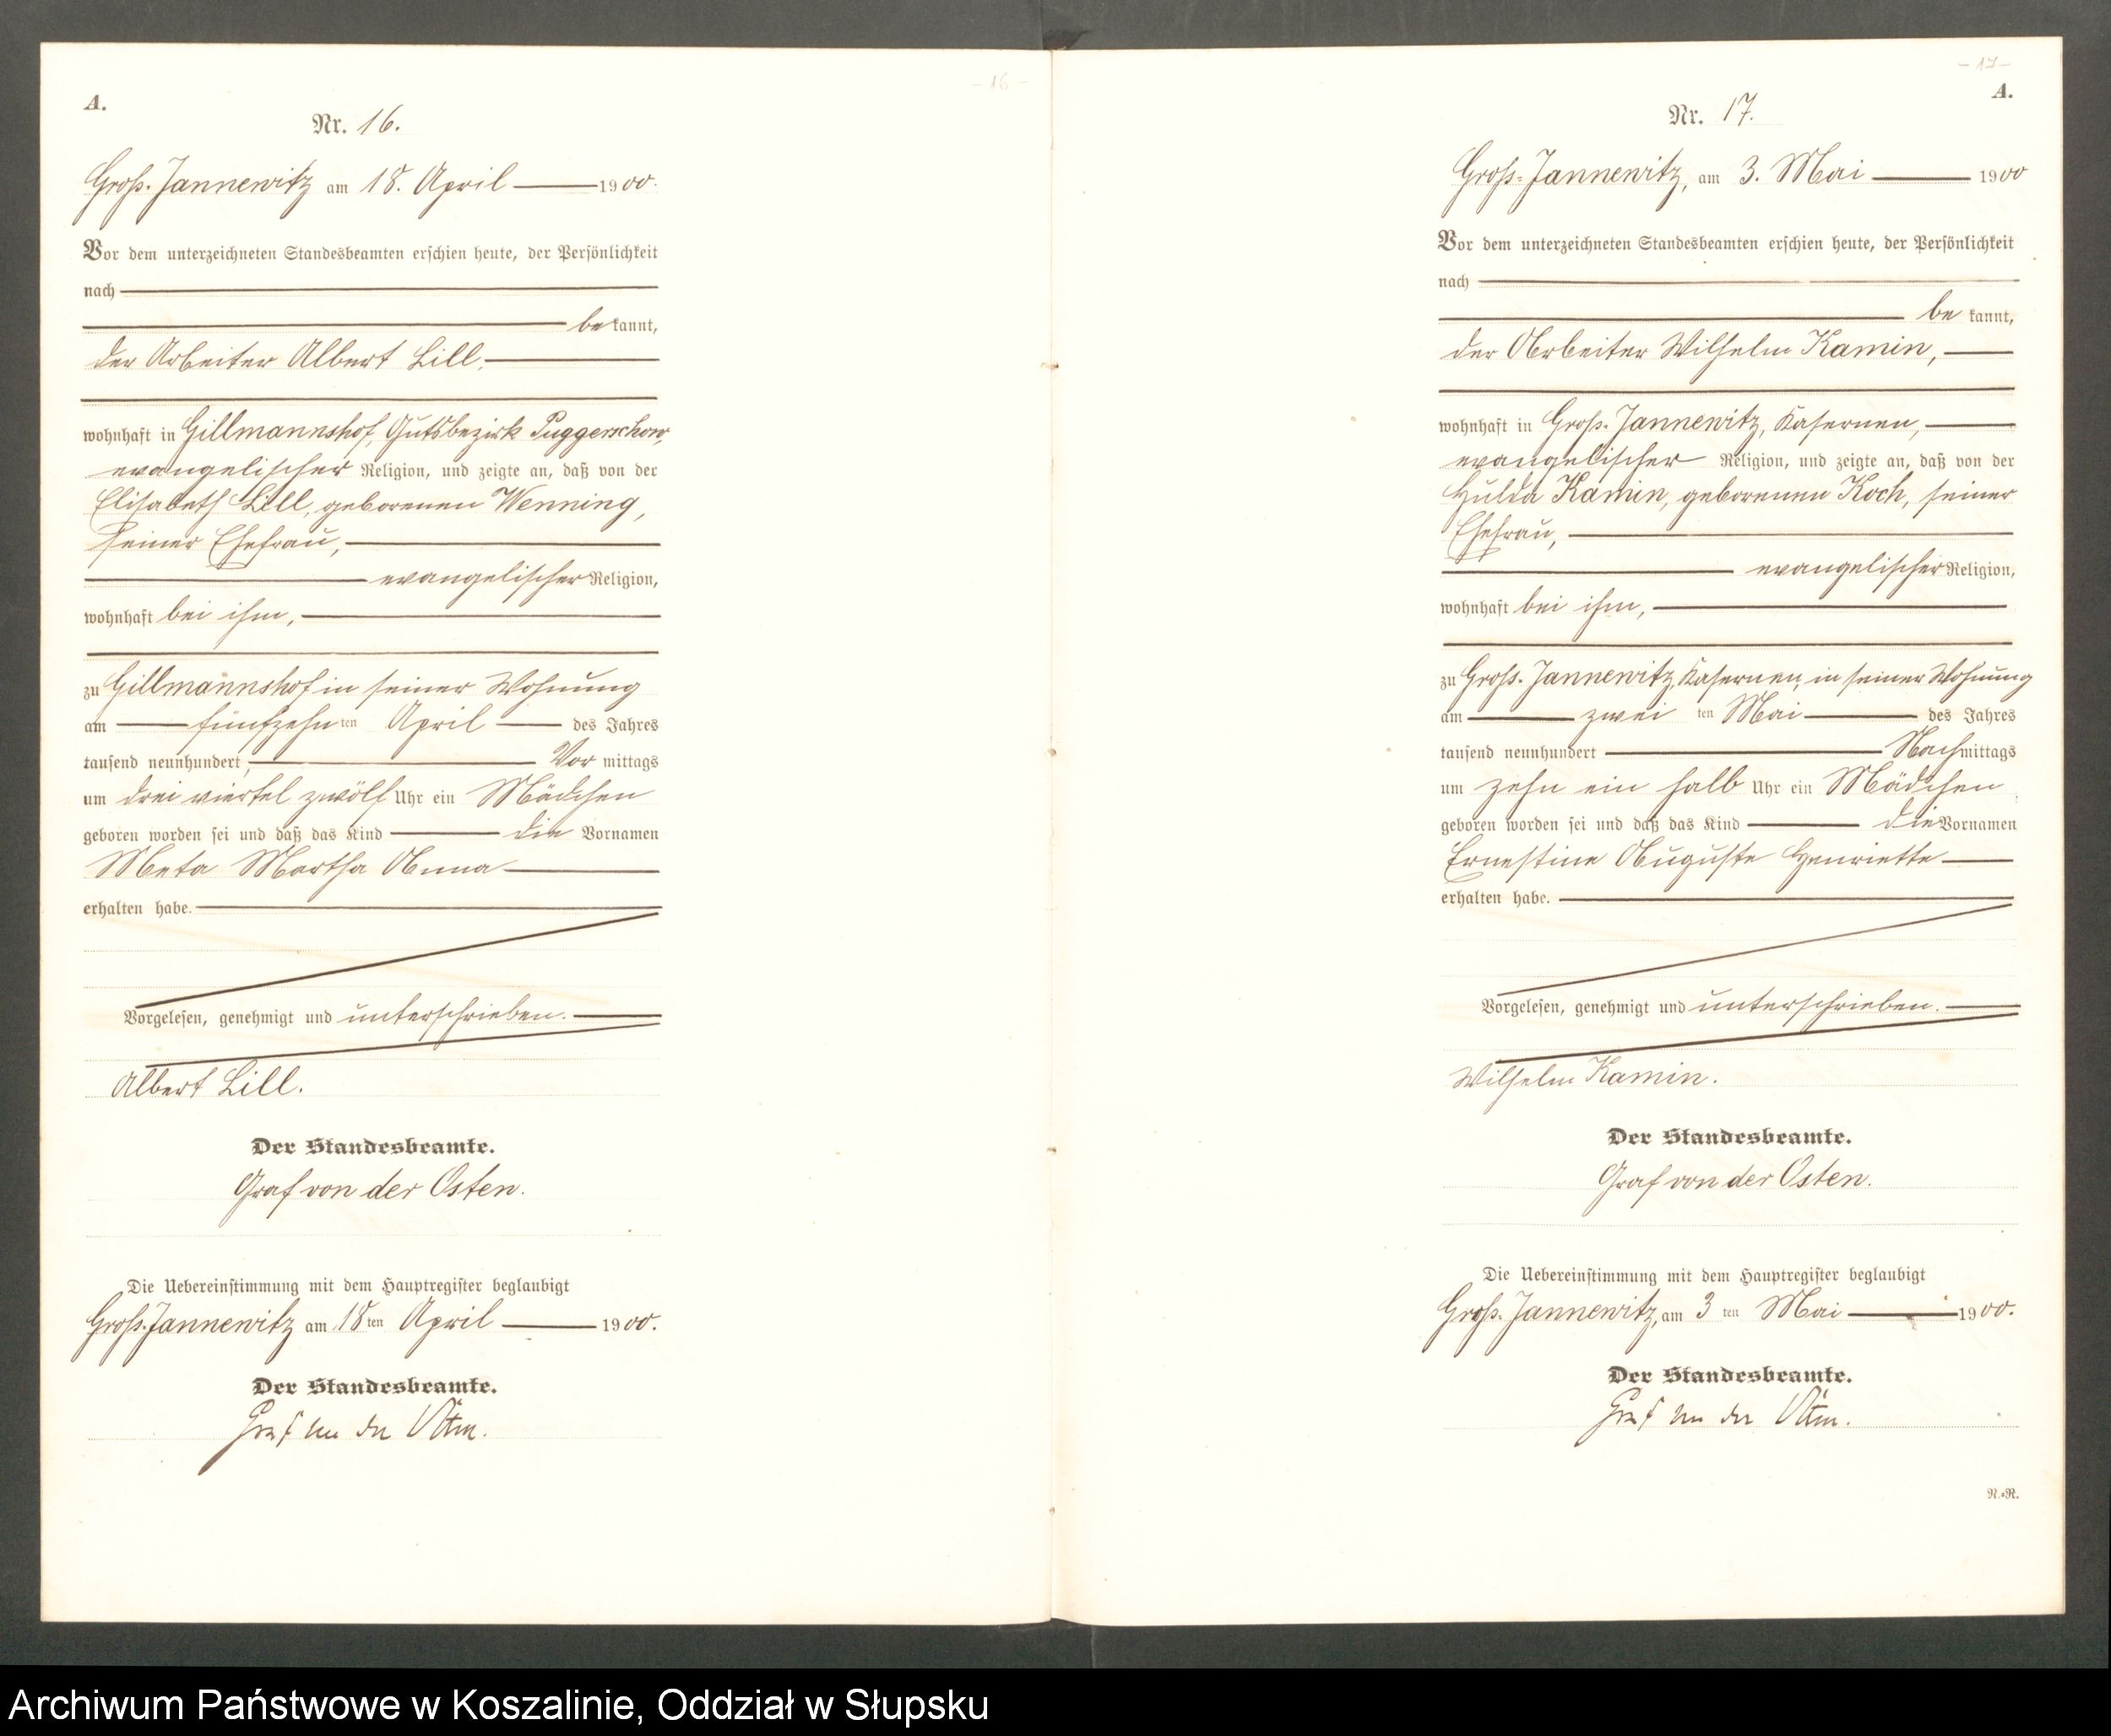 - 16 -
A.
Nr. 16.
Groß-Jannewitz am 18. April 1900.
Vor dem unterzeichneten Standesbeamten erschien heute, der Persönlichkeit
nach
bekannt,
der Arbeiter Albert Lill,
wohnhaft in Gillmannshof, Gutsbezirk Puggerschow,
evangelischer Religion, und zeigte an, daß von der
Elisabeth Lill, geborenen Wenning,
seiner Ehefrau,
evangelischer Religion,
wohnhaft bei ihm,
zu Gillmannshof in seiner Wohnung
am fünfzehnten April des Jahres
tausend neunhundert, Vormittags
um drei viertel zwölf Uhr ein Mädchen
geboren worden sei und daß das Kind die Vornamen
Meta Martha Anna
erhalten habe.
Vorgelesen, genehmigt und unterschrieben.
Albert Lill.
Der Standesbeamte.
Graf von der Osten.
Die Uebereinstimmung mit dem Hauptregister beglaubigt
Groß-Jannewitz am 18ten April 1900.
Der Standesbeamte.
Graf von der Osten.
- 17 -
A.
Nr. 17.
Groß-Jannewitz, am 3. Mai 1900
Vor dem unterzeichneten Standesbeamten erschien heute, der Persönlichkeit
nach
bekannt,
der Arbeiter Wilhelm Kamin,
wohnhaft in Groß-Jannewitz, Kasernen,
evangelischer Religion, und zeigte an, daß von der
Hulda Kamin, geborenen Koch, seiner
Ehefrau,
evangelischer Religion,
wohnhaft bei ihm,
zu Groß-Jannewitz, Kasernen, in seiner Wohnung
am zweiten Mai des Jahres
tausend neunhundert Nachmittags
um zehn ein halb Uhr ein Mädchen
geboren worden sei und daß das Kind die Vornamen
Ernestine Auguste Henriette
erhalten habe.
Vorgelesen, genehmigt und unterschrieben.
Wilhelm Kamin.
Der Standesbeamte.
Graf von der Osten.
Die Uebereinstimmung mit dem Hauptregister beglaubigt
Groß-Jannewitz, am 3ten Mai 1900.
Der Standesbeamte.
Graf von der Osten.
N.=R.
Archiwum Państwowe w Koszalinie, Oddział w Słupsku